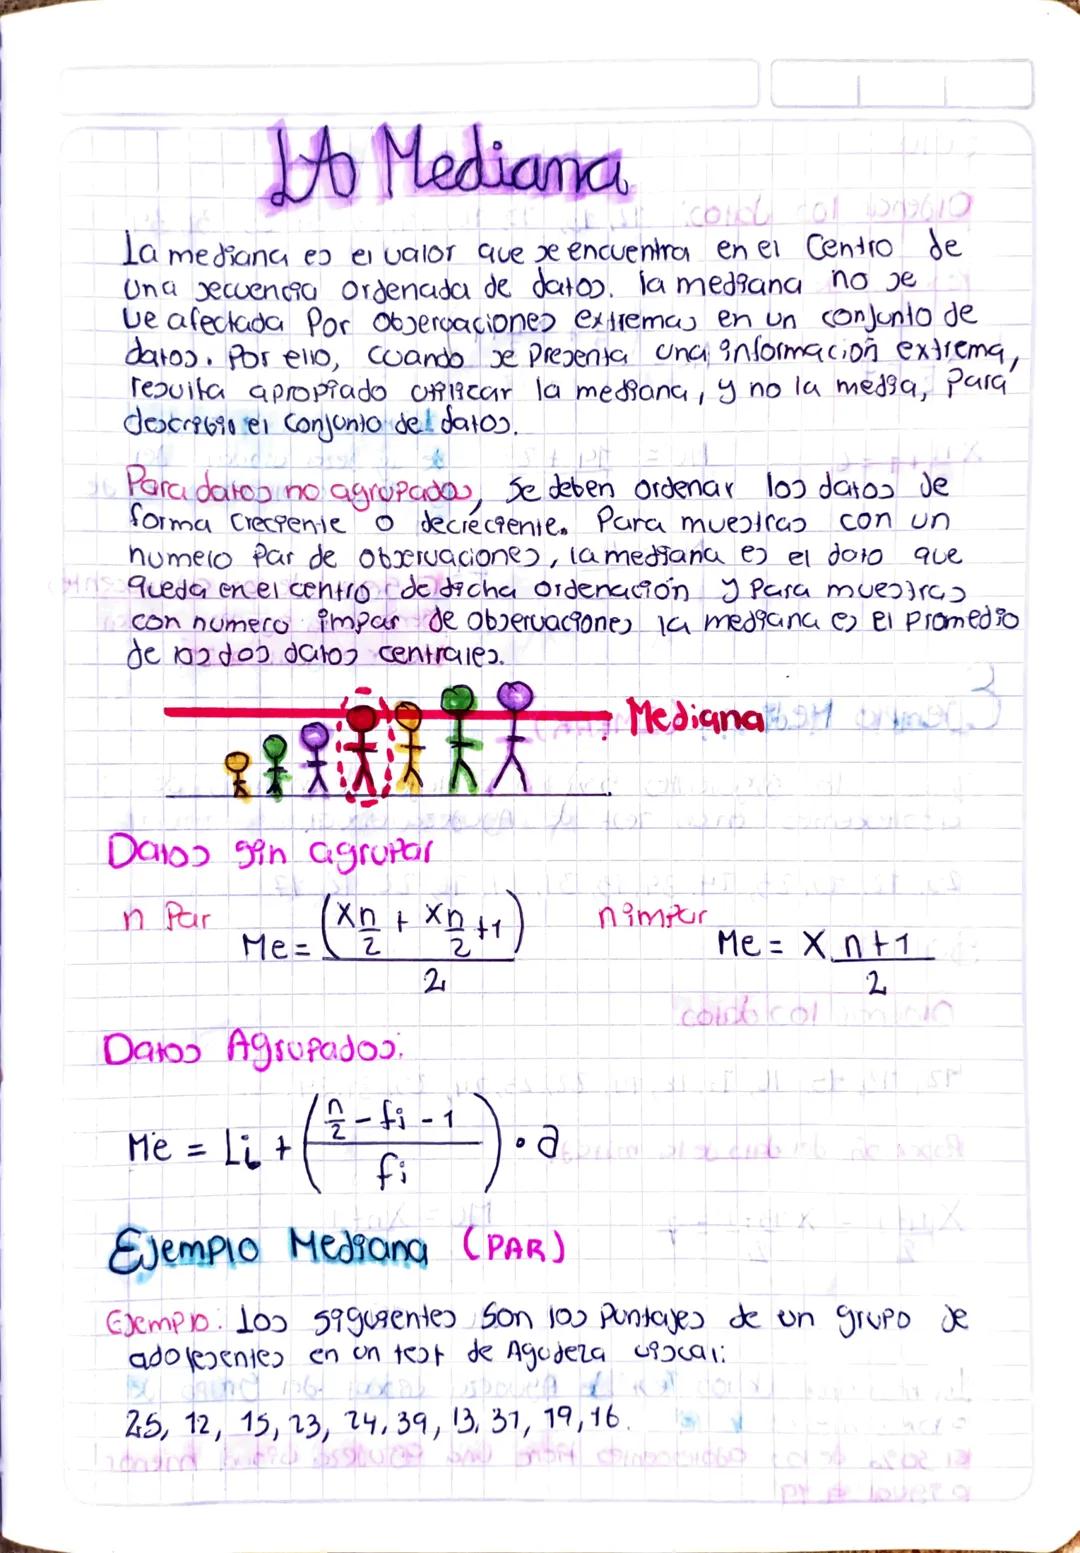 LA Mediana
La mediana es el valor que se encuentra en el Centro de
una secuencia ordenada de datos. la mediana no se
ve afectada Por observaciones extremas en un conjunto de
datos. Por ello, cuando se Presenta una información extrema,
resulta apropiado utilizar la mediana, y no la media, Para
describir el conjunto del datos.
Para datos no agrupados, Se deben ordenar los datos de
forma creciente o decreciente. Para muestras con un
numero Par de observaciones, la mediana es el dato que
queda en el centro de dicha ordenación y Para muestras
con numero impar de observaciones la mediana es el Promedio
de los dos datos centrales.
Mediana
Datos sin agrupar
n Par Me = (X n/2 + X n/2 +1) / 2 n impar Me = X n+1 / 2
Datos Agrupados:
Me = Li + ( (n/2 - fi - 1) / fi ) · a
Ejemplo Mediana (PAR)
Ejemplo: Los siguientes Son los Puntajes de un grupo de
adolesentes en un test de Agudeza visual:
25, 12, 15, 23, 24, 39, 13, 31, 19, 16.